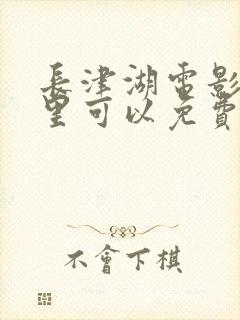 長津湖電影
里可以免費
不會下棋